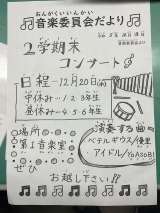 おんがくいいんかい
音楽委員会だより
音楽委員会より
2学期末
コンサート
日程…12月20日(水)
中休み…1.2.3年生
昼休み…4.5.6年生
場所
第1音楽室
演奏する曲
ベテルギウス/優里
アイドル/YOASOBI
ぜひ
お越し下さい!!